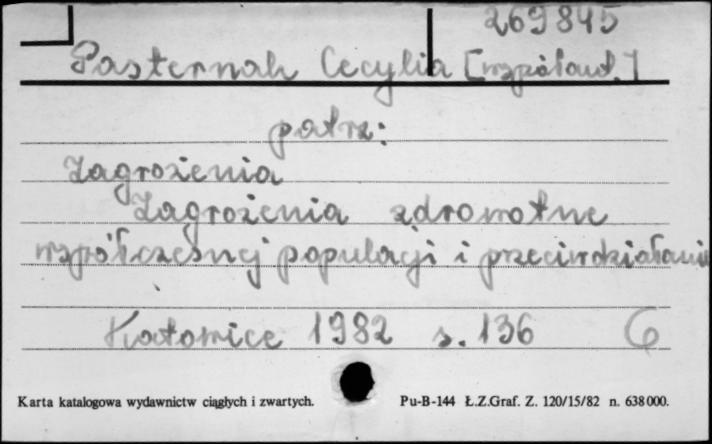 269845
Pasternak Cecylia [współaut.]
patrz:
Zagrożenia
Zagrożenia zdrowotne
współczesnej populacji i przeciwdziałanie
Katowice 1982 s. 136 6
Karta katalogowa wydawnictw ciągłych i zwartych. Pu-B-144 Ł.Z.Graf. Z. 120/15/82 n. 638000.